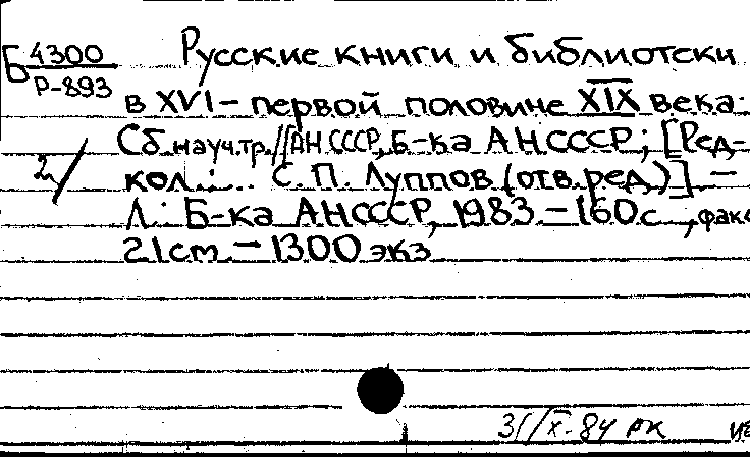 Б 4300
Р-893
Русские книги и библиотеки
в XVI – первой половине XIX века:
Сб. науч. тр. // [АН СССР, Б-ка АН СССР; [Ред-
кол.: ... С. П. Луппов (отв. ред.)]. –
Л.: Б-ка АН СССР, 1983. – 160 с., факс
21 cm. – 1300 экз
31/X-84 РК